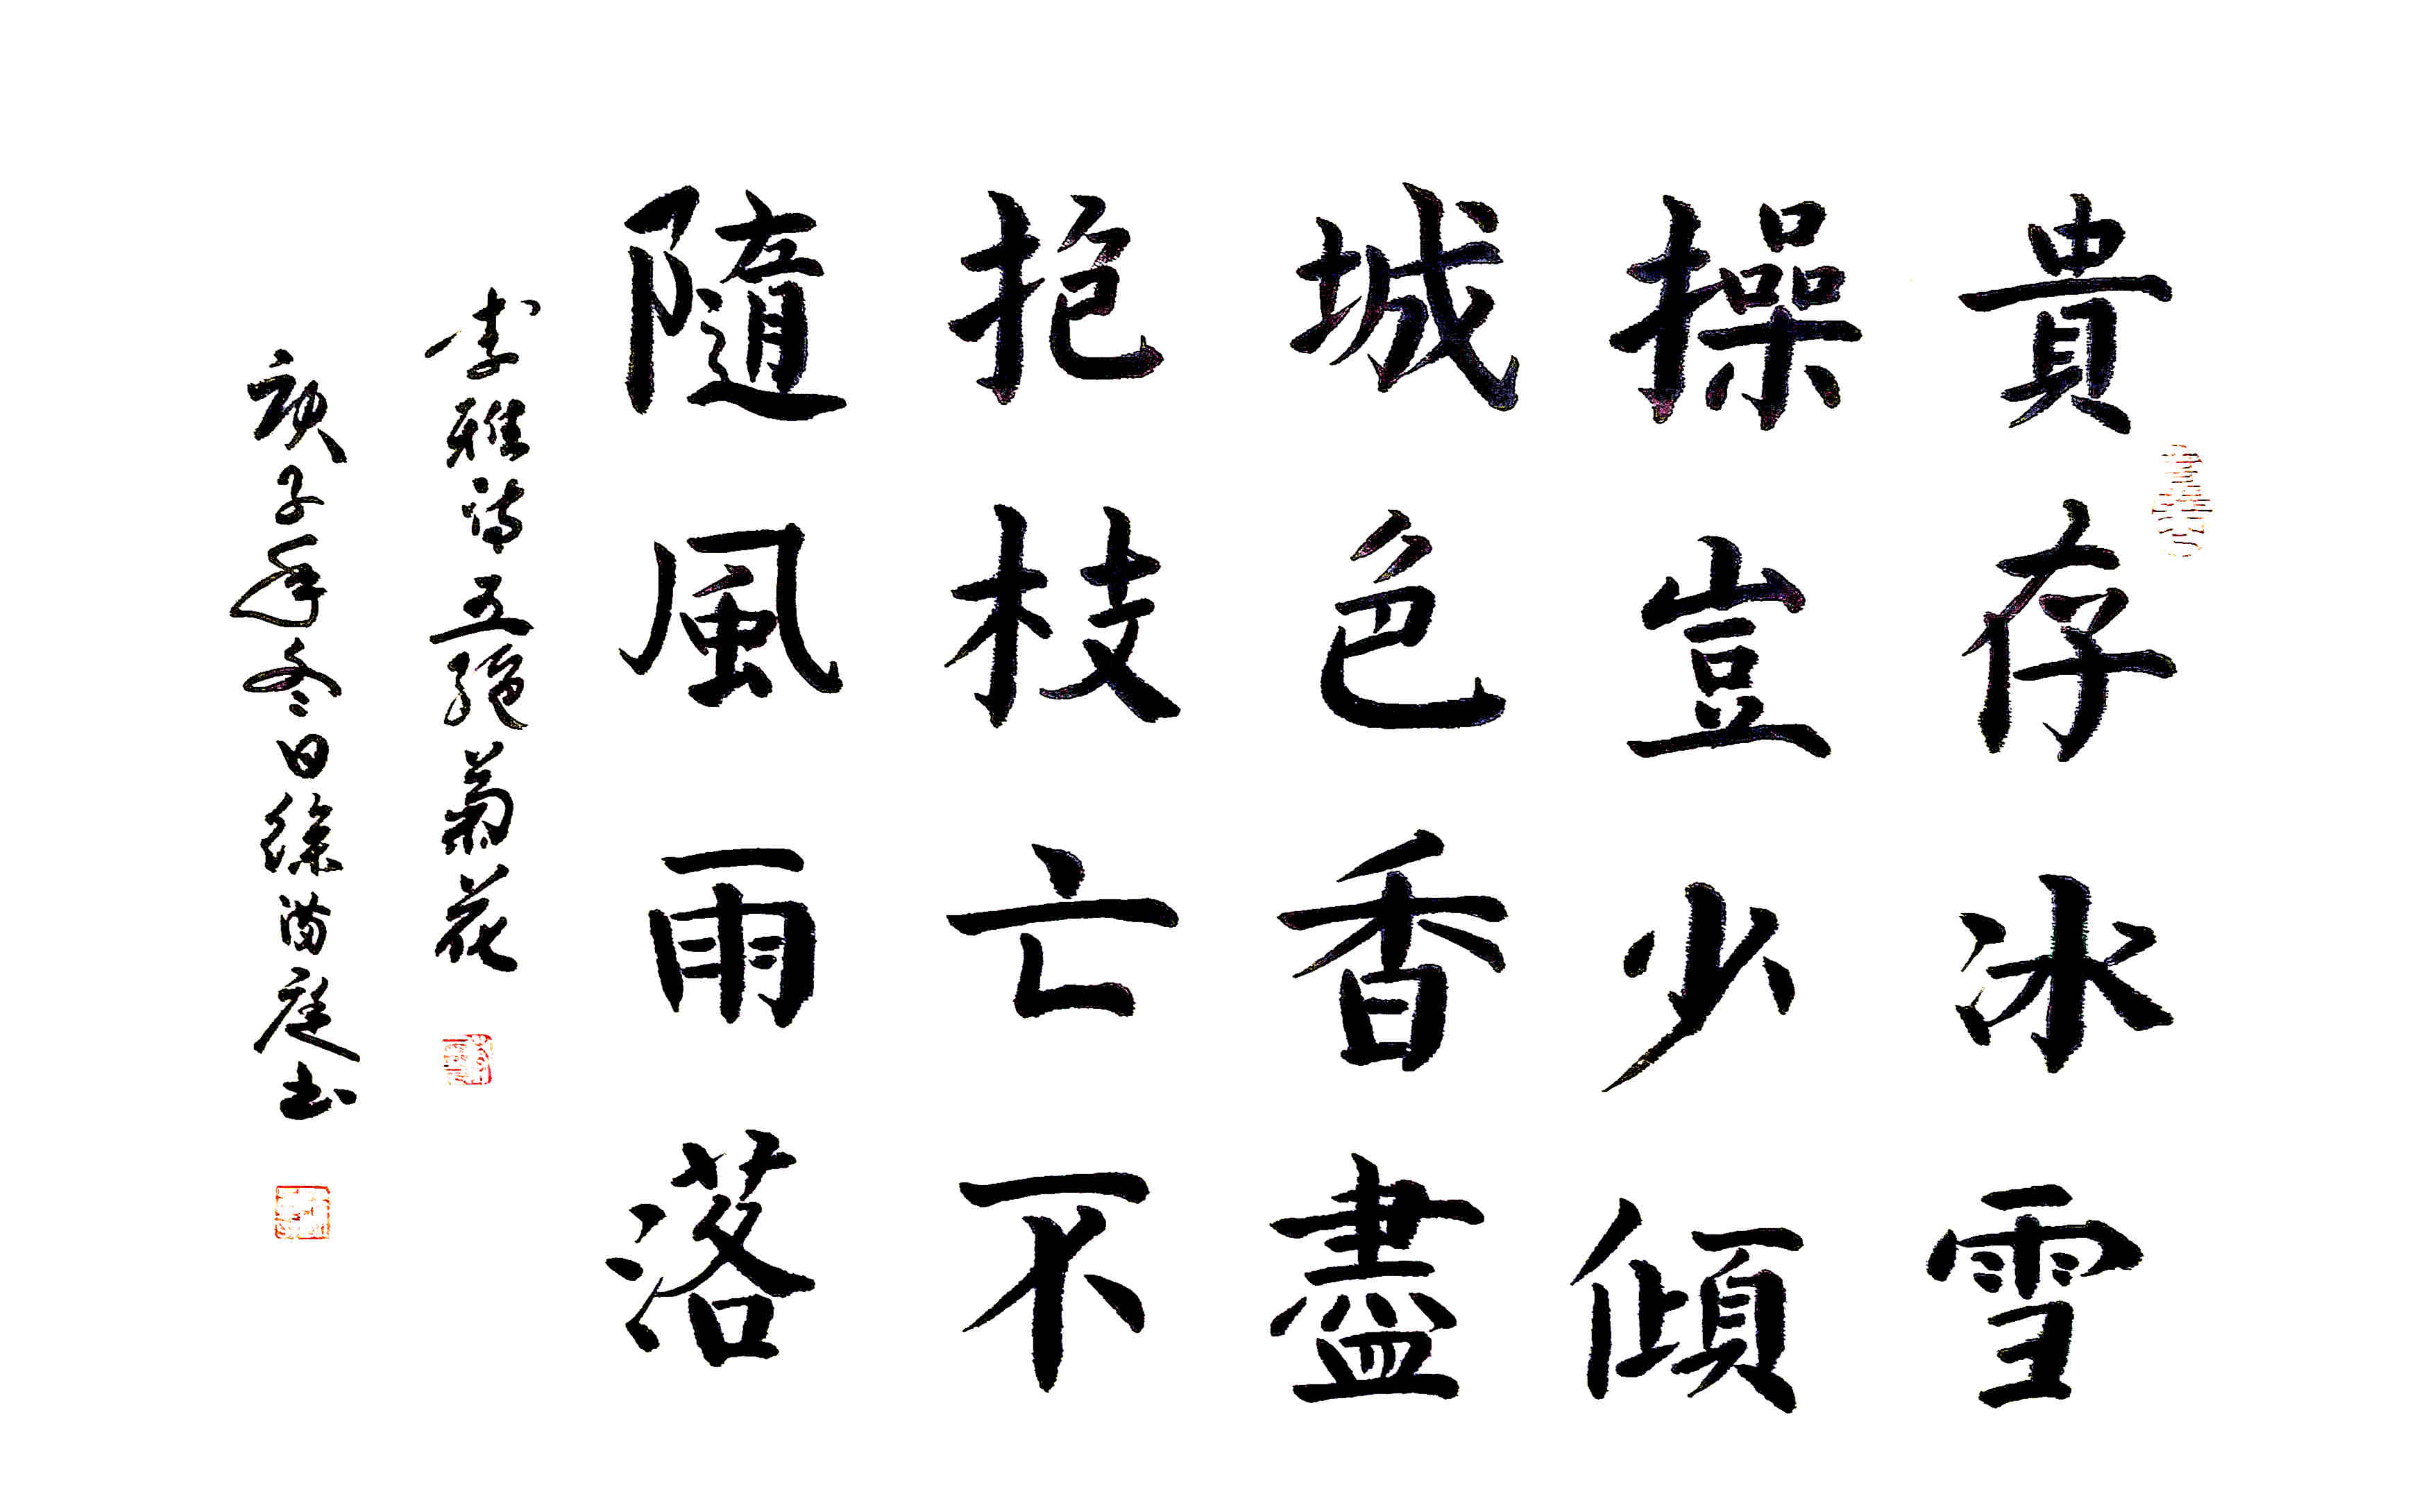 貴存冰雪
操豈少傾
城色香盡
抱枝亡不
隨風雨落
李雅诗五絕菊花
庚子年冬日徐满庭书